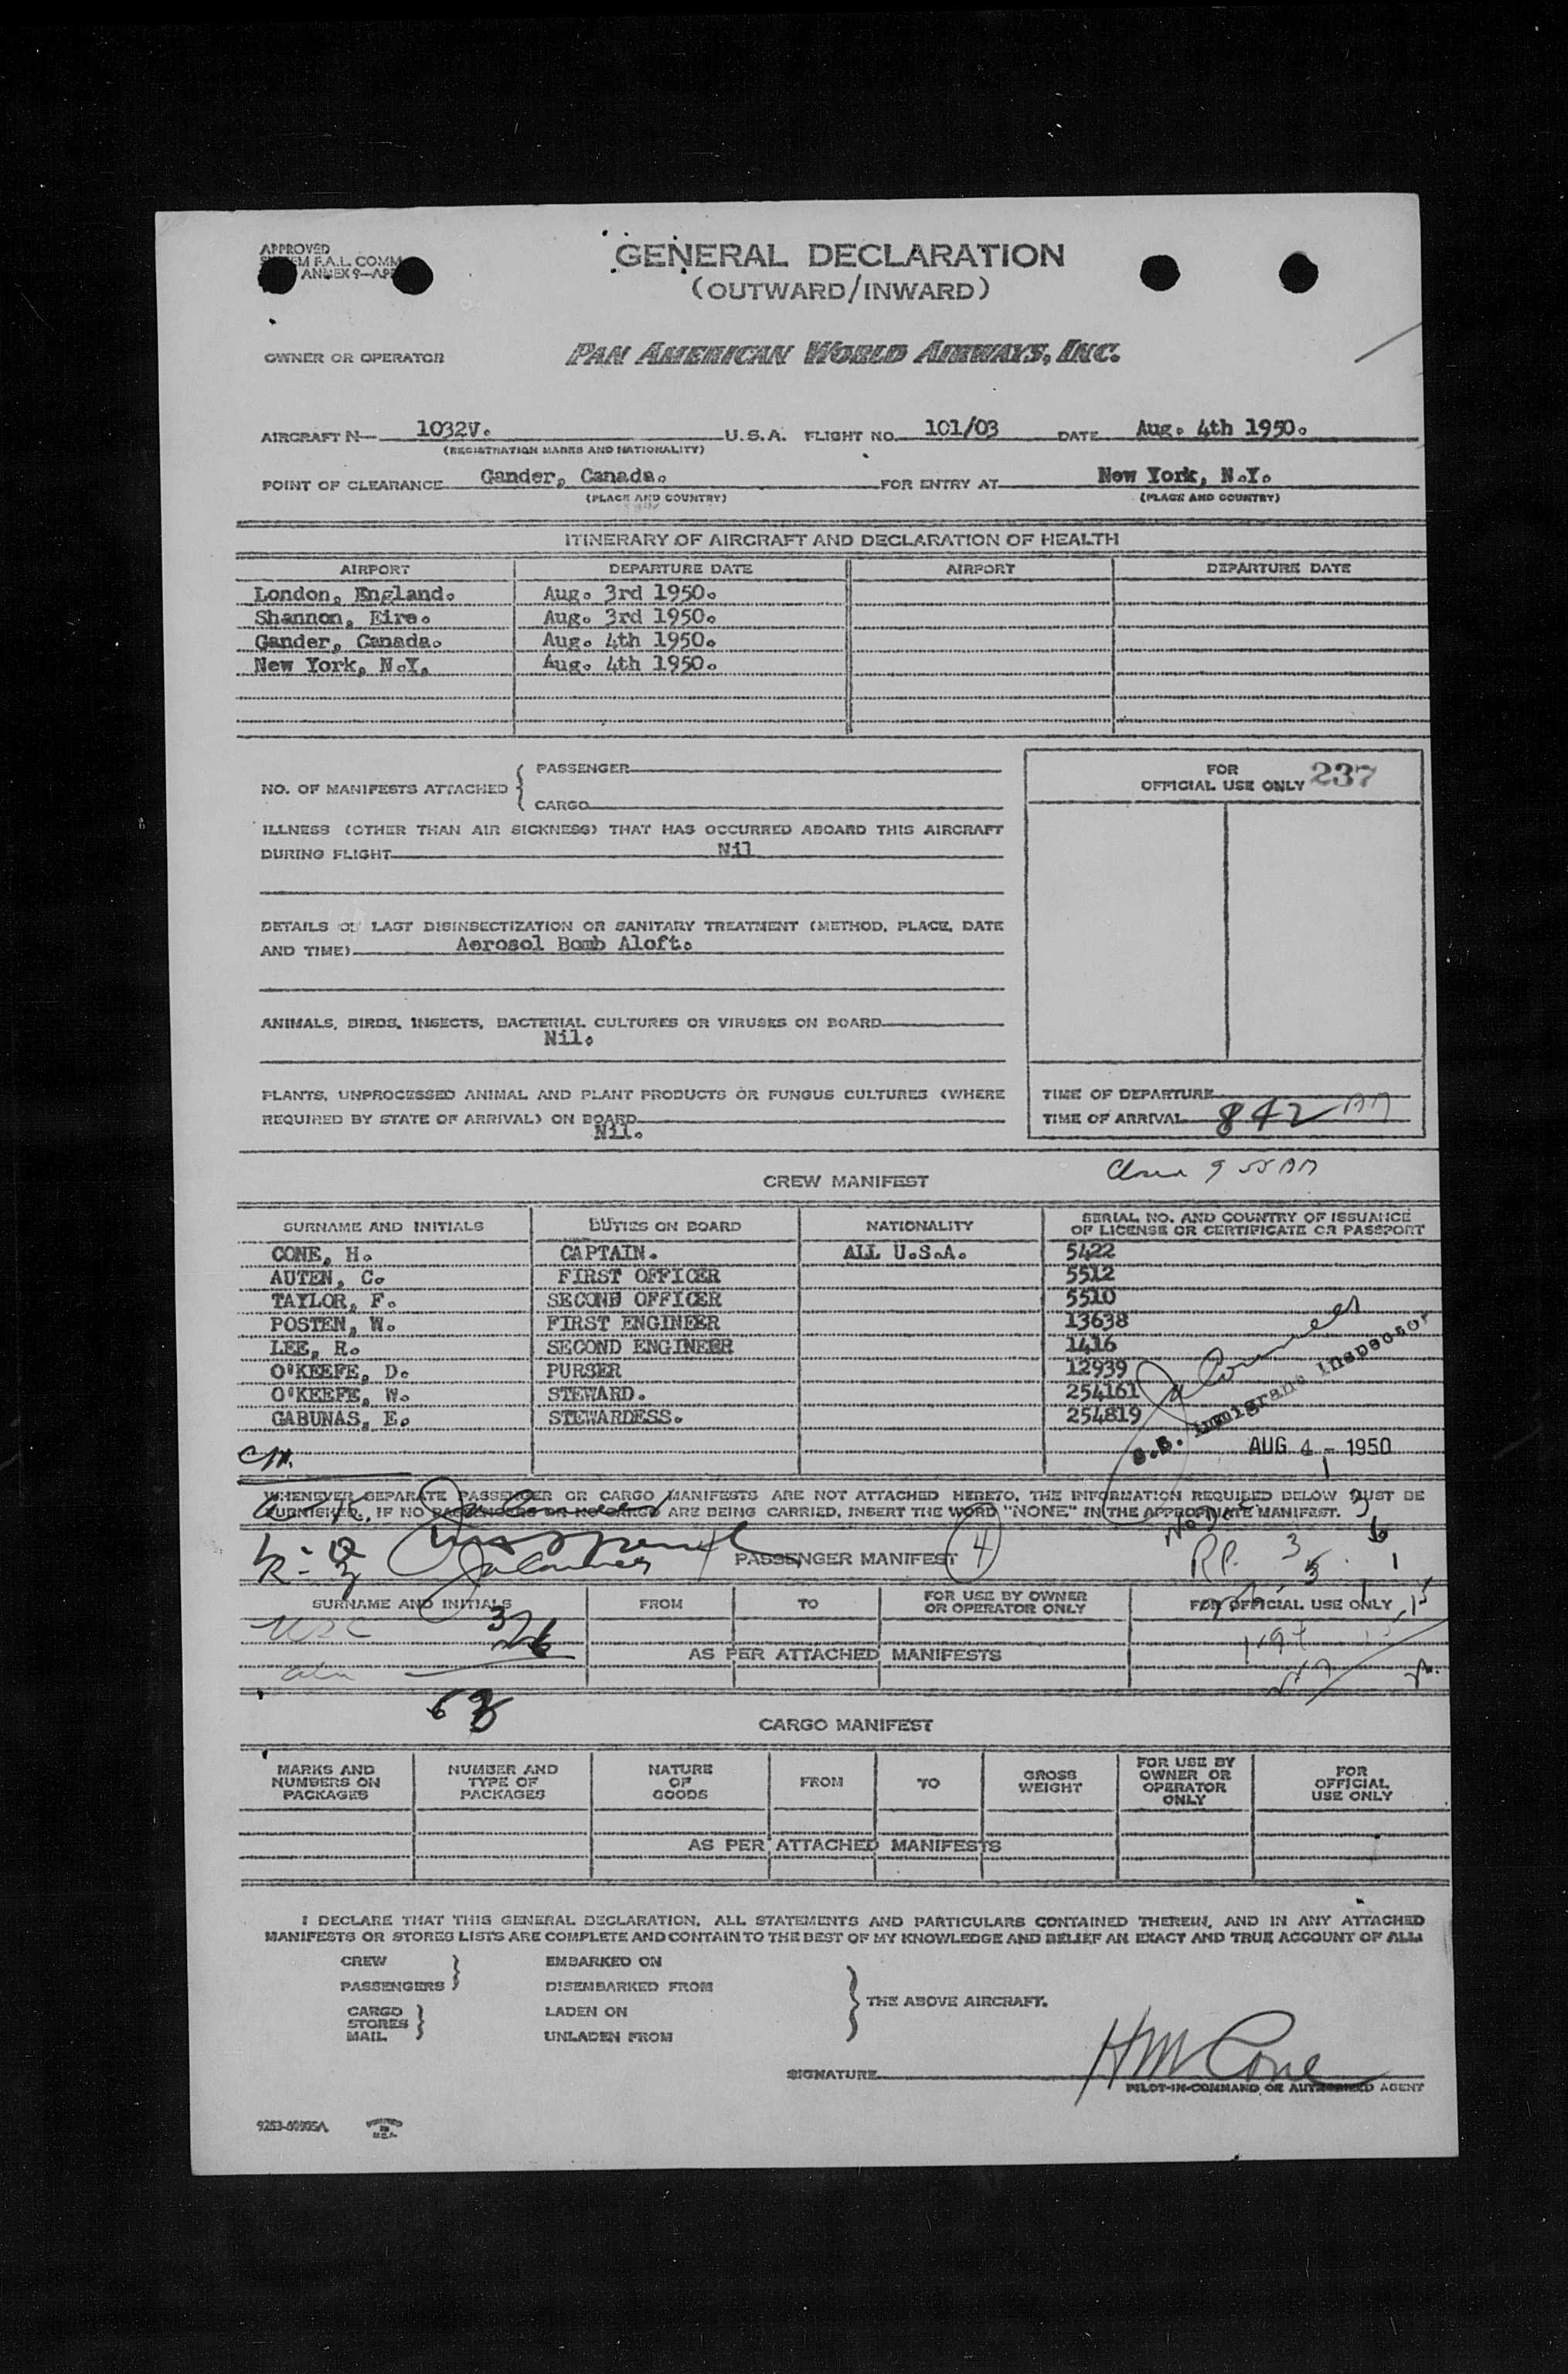 APPROVED
GENERAL DECLARATION
F.A.L. COMM
ANNEX 9—
(OUTWARD/INWARD)
OWNER OR OPERATOR PAN AMERICAN WORLD AIRWAYS, INC.
AIRCRAFT N— 1032V. U.S.A. FLIGHT NO. 101/03 DATE Aug. 4th 1950.
(REGISTRATION MARKS AND NATIONALITY)
POINT OF CLEARANCE Gander, Canada. FOR ENTRY AT New York, N.Y.
(PLACE AND COUNTRY) (PLACE AND COUNTRY)
ITINERARY OF AIRCRAFT AND DECLARATION OF HEALTH
AIRPORT DEPARTURE DATE AIRPORT DEPARTURE DATE
London, England. Aug. 3rd 1950.
Shannon, Eire. Aug. 3rd 1950.
Gander, Canada. Aug. 4th 1950.
New York, N.Y. Aug. 4th 1950.
NO. OF MANIFESTS ATTACHED { PASSENGER
CARGO
FOR
OFFICIAL USE ONLY 237
ILLNESS (OTHER THAN AIR SICKNESS) THAT HAS OCCURRED ABOARD THIS AIRCRAFT
DURING FLIGHT Nil
DETAILS OF LAST DISINSECTIZATION OR SANITARY TREATMENT (METHOD, PLACE, DATE
AND TIME) Aerosol Bomb Aloft.
ANIMALS, BIRDS, INSECTS, BACTERIAL CULTURES OR VIRUSES ON BOARD
Nil.
PLANTS, UNPROCESSED ANIMAL AND PLANT PRODUCTS OR FUNGUS CULTURES (WHERE
REQUIRED BY STATE OF ARRIVAL) ON BOARD
Nil.
TIME OF DEPARTURE
TIME OF ARRIVAL 842 AM
CREW MANIFEST
9 55 AM
SURNAME AND INITIALS DUTIES ON BOARD NATIONALITY SERIAL NO. AND COUNTRY OF ISSUANCE
OF LICENSE OR CERTIFICATE OR PASSPORT
CONE, H. CAPTAIN. ALL U.S.A. 5422
AUTEN, C. FIRST OFFICER 5512
TAYLOR, F. SECOND OFFICER 5510
POSTEN, W. FIRST ENGINEER 13638
LEE, R. SECOND ENGINEER 1416
O'KEEFE, D. PURSER 12939
O'KEEFE, W. STEWARD. 254161
GABUNAS, E. STEWARDESS. 254819
U.S. Immigrant Inspector
AUG 4 - 1950
WHENEVER SEPARATE PASSENGER OR CARGO MANIFESTS ARE NOT ATTACHED HERETO, THE INFORMATION REQUIRED BELOW MUST BE
FURNISHED. IF NO PASSENGERS OR NO CARGO ARE BEING CARRIED, INSERT THE WORD "NONE" IN THE APPROPRIATE MANIFEST.
PASSENGER MANIFEST 4
SURNAME AND INITIALS FROM TO FOR USE BY OWNER
OR OPERATOR ONLY
FOR OFFICIAL USE ONLY
AS PER ATTACHED MANIFESTS
CARGO MANIFEST
MARKS AND
NUMBERS ON
PACKAGES
NUMBER AND
TYPE OF
PACKAGES
NATURE
OF
GOODS
FROM
TO
GROSS
WEIGHT
FOR USE BY
OWNER OR
OPERATOR
ONLY
FOR
OFFICIAL
USE ONLY
AS PER ATTACHED MANIFESTS
I DECLARE THAT THIS GENERAL DECLARATION, ALL STATEMENTS AND PARTICULARS CONTAINED THEREIN, AND IN ANY ATTACHED
MANIFESTS OR STORES LISTS ARE COMPLETE AND CONTAIN TO THE BEST OF MY KNOWLEDGE AND BELIEF AN EXACT AND TRUE ACCOUNT OF ALL:
CREW EMBARKED ON
PASSENGERS DISEMBARKED FROM
THE ABOVE AIRCRAFT.
CARGO LADEN ON
STORES
MAIL UNLADEN FROM
SIGNATURE HM Cone
PILOT-IN-COMMAND OR AUTHORIZED AGENT
PRINTED
IN
U.S.A.